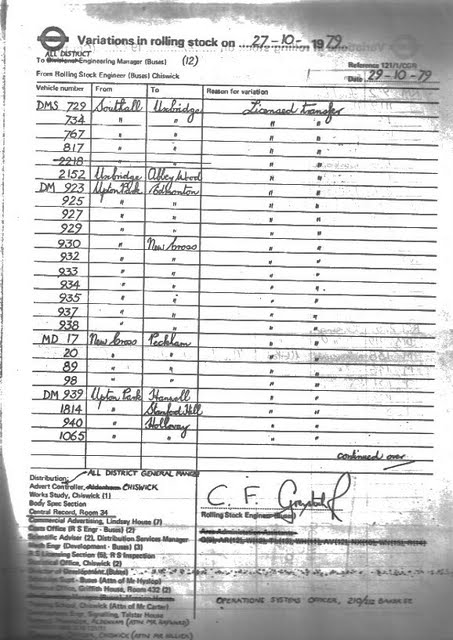 Variations in rolling stock on 27-10-1979
ALL DISTRICT
To Divisional Engineering Manager (Buses) (12)
Reference 121/1/CGR
From Rolling Stock Engineer (Buses) Chiswick
Date 29-10-79
Vehicle number From To Reason for variation
DMS 729 Southall Uxbridge Licensed transfer
734 " " " "
767 " " " "
817 " " " "
2218 " " " "
2152 Uxbridge Abbey Wood " "
DM 923 Upton Park Edmonton " "
925 " " " "
927 " " " "
929 " " " "
930 " New Cross " "
932 " " " "
933 " " " "
934 " " " "
935 " " " "
937 " " " "
938 " " " "
MD 17 New Cross Peckham " "
20 " " " "
89 " " " "
98 " " " "
DM 939 Upton Park Hanwell " "
1814 " Stamford Hill " "
940 " Holloway " "
1065 " " " "
continued over
Distribution: ALL DISTRICT GENERAL
Advert Controller, Aldenham CHISWICK
Works Study, Chiswick (1)
Body Spec Section
Central Record, Room 34
Commercial Advertising, Lindsay House (7)
Class Office (R S Engr - Buses) (2)
Scientific Adviser (2), Distribution Services Manager
Tech Engr (Development - Buses) (3)
R S Licensing Section (5), R S Inspection
Statistical Office, Chiswick (2)
Development (Buses)
Dept - Buses (Attn of Mr Hyslop)
Griffith House, Room 432 (2)
School, Chiswick (Attn of Mr Carter)
Engr, Signalling, Telstar House
C. F.
Rolling Stock Engineer
OPERATIONS SYSTEMS OFFICER, 210/212 BAKER ST